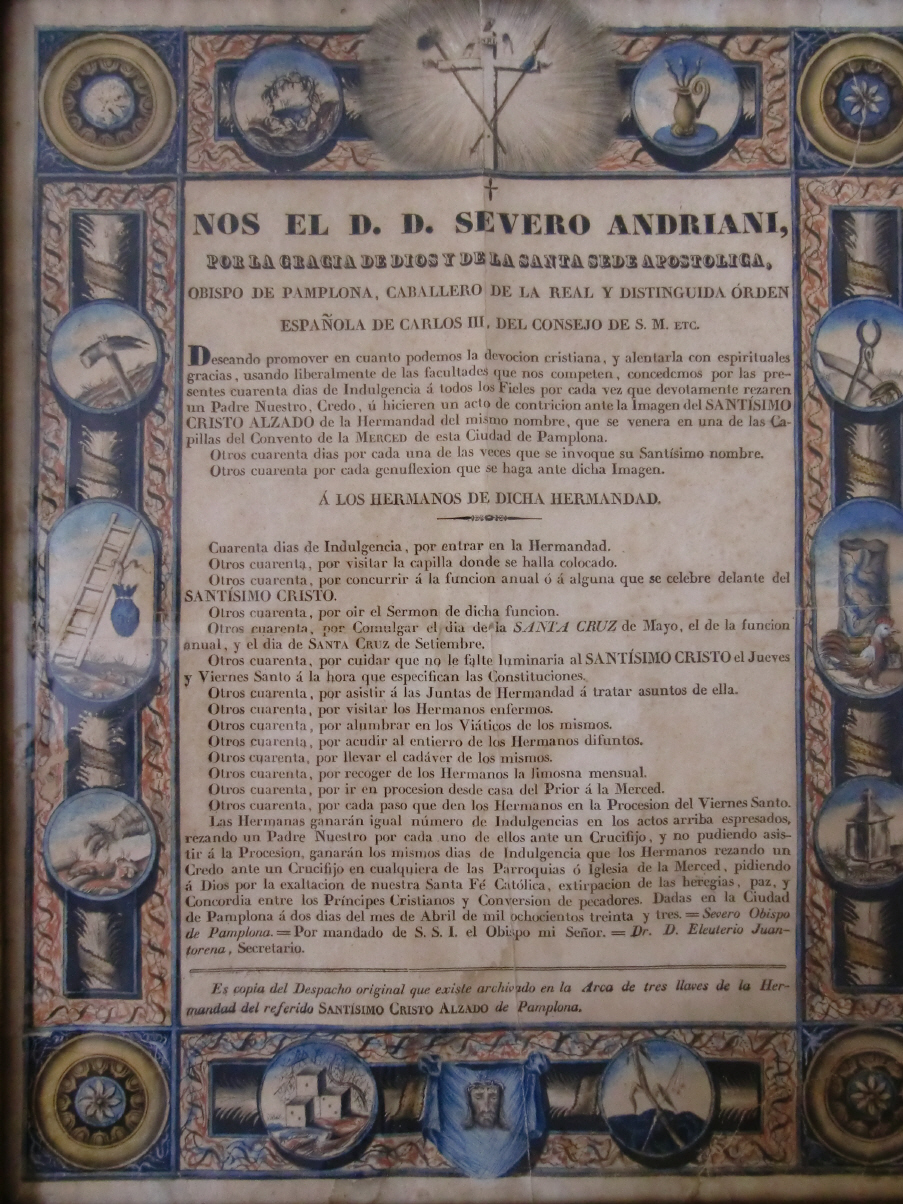 NOS EL D. D. SEVERO ANDRIANI,
POR LA GRACIA DE DIOS Y DE LA SANTA SEDE APOSTOLICA,
OBISPO DE PAMPLONA, CABALLERO DE LA REAL Y DISTINGUIDA ÓRDEN
ESPAÑOLA DE CARLOS III, DEL CONSEJO DE S. M. ETC.
Deseando promover en cuanto podemos la devocion cristiana, y alentarla con espirituales
gracias, usando liberalmente de las facultades que nos competen, concedemos por las pre-
sentes cuarenta dias de Indulgencia á todos los Fieles por cada vez que devotamente rezaren
un Padre Nuestro, Credo, ú hicieren un acto de contricion ante la Imagen del SANTÍSIMO
CRISTO ALZADO de la Hermandad del mismo nombre, que se venera en una de las Ca-
pillas del Convento de la MERCED de esta Ciudad de Pamplona.
Otros cuarenta dias por cada una de las veces que se invoque su Santísimo nombre.
Otros cuarenta por cada genuflexion que se haga ante dicha Imagen.
Á LOS HERMANOS DE DICHA HERMANDAD.
Cuarenta dias de Indulgencia, por entrar en la Hermandad.
Otros cuarenta, por visitar la capilla donde se halla colocado.
Otros cuarenta, por concurrir á la funcion anual ó á alguna que se celebre delante del
SANTÍSIMO CRISTO.
Otros cuarenta, por oir el Sermon de dicha funcion.
Otros cuarenta, por Comulgar el dia de la SANTA CRUZ de Mayo, el de la funcion
anual, y el dia de SANTA CRUZ de Setiembre.
Otros cuarenta, por cuidar que no le falte luminaria al SANTÍSIMO CRISTO el Jueves
y Viernes Santo á la hora que especifican las Constituciones.
Otros cuarenta, por asistir á las Juntas de Hermandad á tratar asuntos de ella.
Otros cuarenta, por visitar los Hermanos enfermos.
Otros cuarenta, por alumbrar en los Viáticos de los mismos.
Otros cuarenta, por acudir al entierro de los Hermanos difuntos.
Otros cuarenta, por llevar el cadáver de los mismos.
Otros cuarenta, por recoger de los Hermanos la limosna mensual.
Otros cuarenta, por ir en procesion desde casa del Prior á la Merced.
Otros cuarenta, por cada paso que den los Hermanos en la Procesion del Viernes Santo.
Las Hermanas ganarán igual número de Indulgencias en los actos arriba espresados,
rezando un Padre Nuestro por cada uno de ellos ante un Crucifijo, y no pudiendo asis-
tir á la Procesion, ganarán los mismos dias de Indulgencia que los Hermanos rezando un
Credo ante un Crucifijo en cualquiera de las Parroquias ó Iglesia de la Merced, pidiendo
á Dios por la exaltacion de nuestra Santa Fé Católica, extirpacion de las heregias, paz, y
Concordia entre los Príncipes Cristianos y Conversion de pecadores. Dadas en la Ciudad
de Pamplona á dos dias del mes de Abril de mil ochocientos treinta y tres. = Severo Obispo
de Pamplona. = Por mandado de S. S. I. el Obispo mi Señor. = Dr. D. Eleuterio Juan-
torena, Secretario.
Es copia del Despacho original que existe archivado en la Arca de tres llaves de la Her-
mandad del referido SANTÍSIMO CRISTO ALZADO de Pamplona.